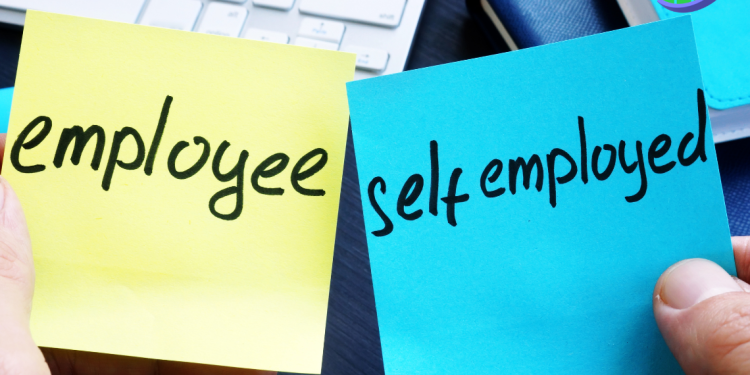 employee
self employed